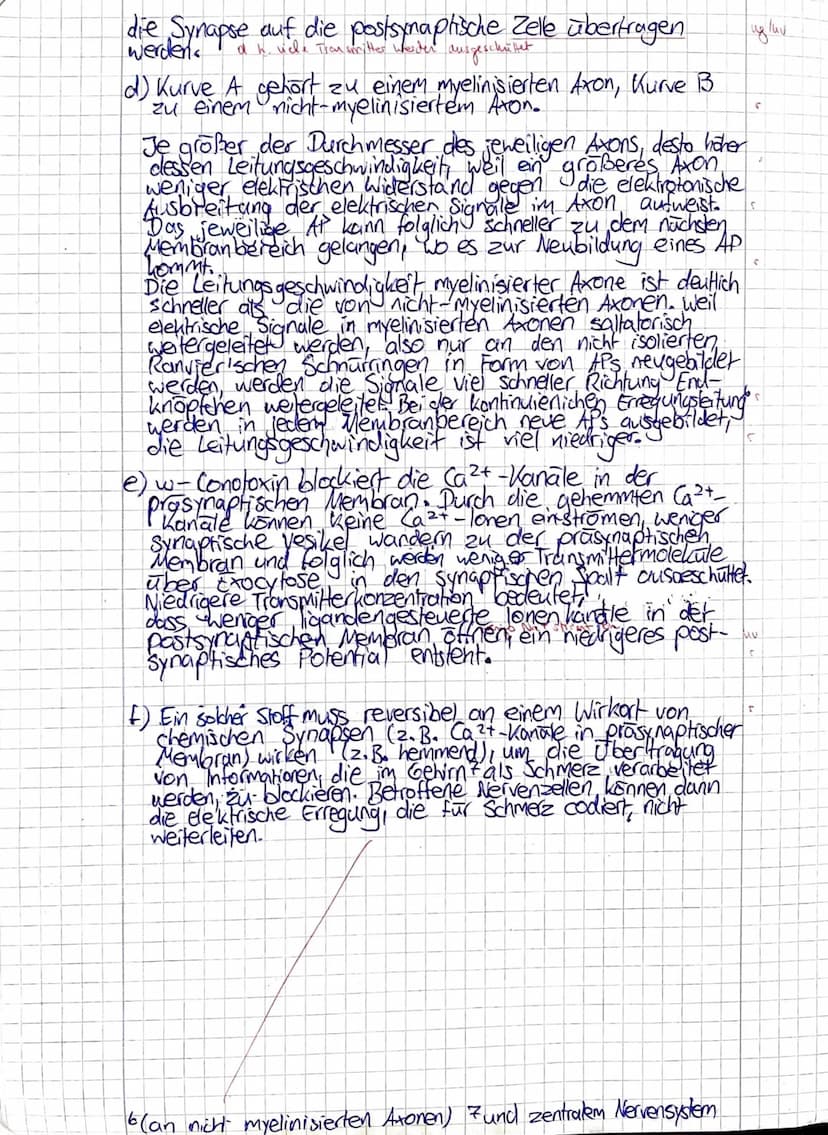 die Synapse auf die postsynaptische Zelle übertragen
werden.
d. h. viele Transmitter werden ausgeschüttet
d) Kurve A gehört zu einem myelinisierten Axon, Kurve B
zu einem nicht-myelinisiertem Axon.
Je größer der Durchmesser des jeweiligen Axons, desto höher
dessen Leitungsgeschwindigkeit, weil ein größeres Axon
weniger elektrischen Widerstand gegen die elektrotonische
Ausbreitung der elektrischen Signale im Axon aufweist.
Das jeweilige AP kann folglich schneller zu dem nächsten
Membranbereich gelangen, wo es zur Neubildung eines AP
kommt.
Die Leitungsgeschwindigkeit myelinisierter Axone ist deutlich
schneller als die von nicht-myelinisierten Axonen. Weil
elektrische Signale in myelinisierten Axonen saltatorisch
weitergeleitet werden, also nur an den nicht isolierten
Ranvier'schen Schnürringen in Form von APs neugebildet
werden, werden die Signale viel schneller Richtung End-
knöpfchen weitergeleitet. Bei der kontinuierlichen Erregungsleitung⁶
werden in jedem Membranbereich neue APs ausgebildet,
die Leitungsgeschwindigkeit ist viel niedriger.
e) ω-Conotoxin blockiert die Ca²⁺-Kanäle in der
präsynaptischen Membran. Durch die gehemmten Ca²⁺-
Kanäle können keine Ca²⁺-Ionen einströmen, weniger
synaptische Vesikel wandern zu der präsynaptischen
Membran und folglich werden weniger Transmittermoleküle
über Exocytose in den synaptischen Spalt ausgeschüttet.
Niedrigere Transmitterkonzentration bedeutet,
dass weniger ligandengesteuerte Ionenkanäle in der
postsynaptischen Membran öffnen, ein niedrigeres post-
synaptisches Potential entsteht.
f) Ein solcher Stoff muss reversibel an einem Wirkort von
chemischen Synapsen (z.B. Ca²⁺-Kanäle in präsynaptischer
Membran) wirken (z.B. hemmend), um die Übertragung
von Informationen, die im Gehirn⁷ als Schmerz verarbeitet
werden, zu blockieren. Betroffene Nervenzellen können dann
die elektrische Erregung, die für Schmerz codiert, nicht
weiterleiten.
⁶(an nicht-myelinisierten Axonen) ⁷und zentralem Nervensystem